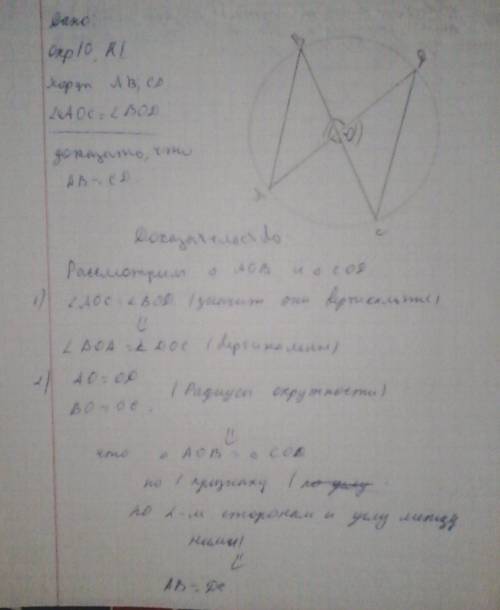 Дано:
Окр(О, R)
хорды AB, CD
∠AOC = ∠BOD
доказать, что
AB = CD.
B
D
O
A
C
Доказательство:
Рассмотрим △ AOB и △ COD
1) ∠AOC = ∠BOD (значит они вертикальные)
⇓
∠BOA = ∠DOC (вертикальные)
2) AO = OD
BO = OC, (Радиусы окружности)
⇓
что △ AOB = △ COD
по 1 признаку (по углу
по 2-м сторонам и углу между
ними)
⇓
AB = DC